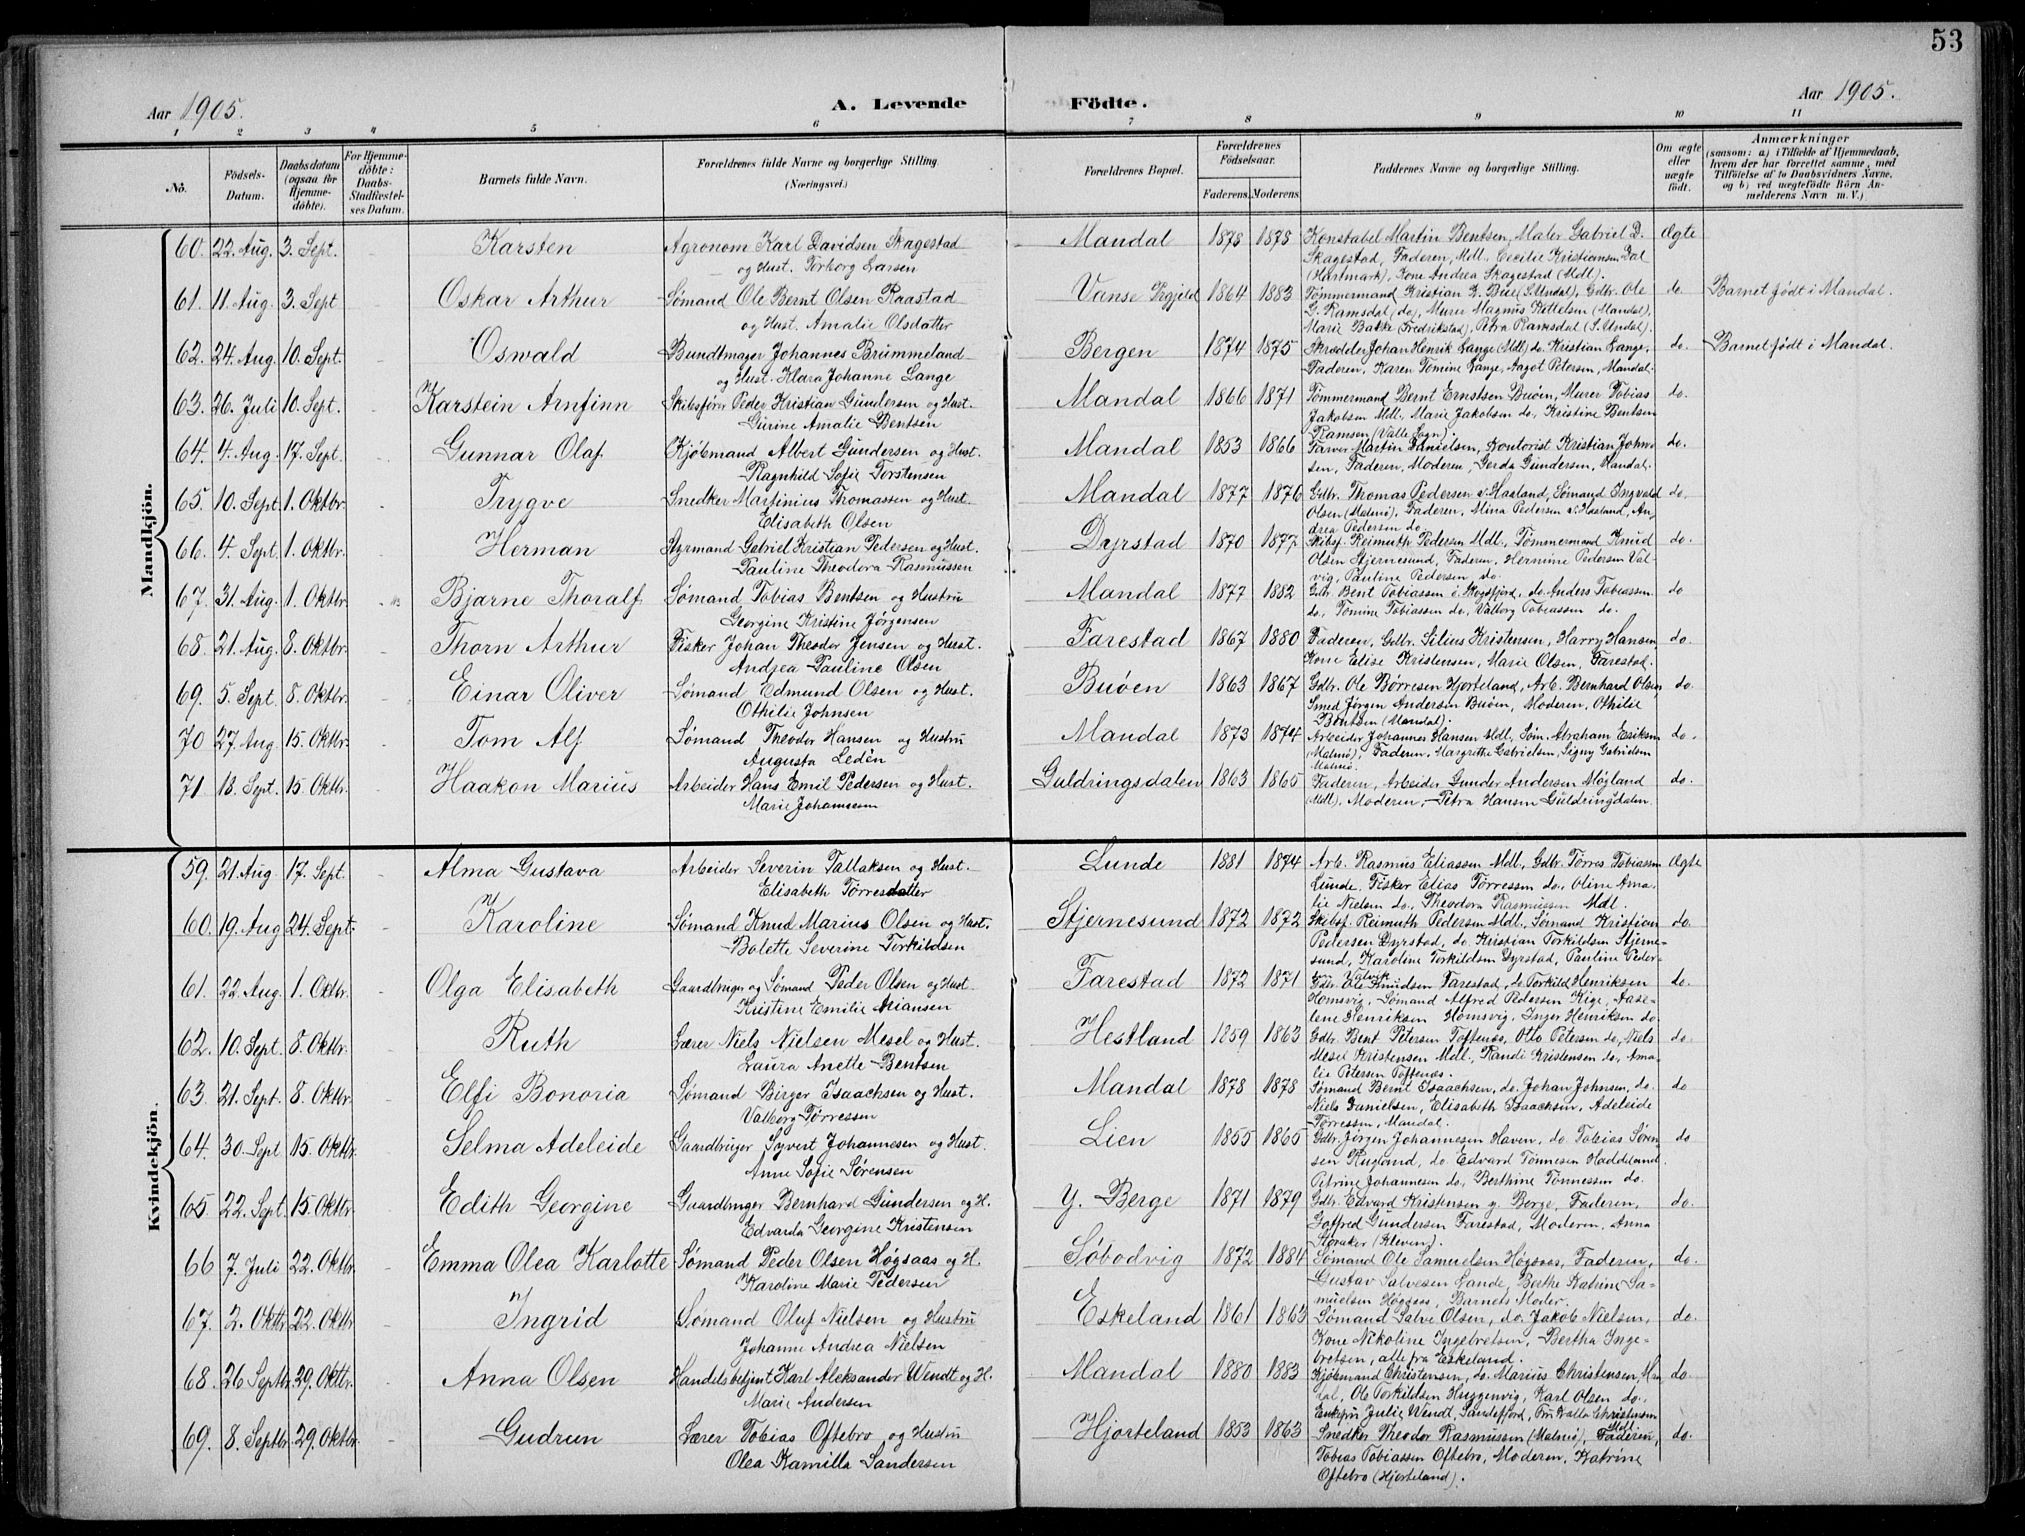 53
Aar 1905. A. Levende Födte. Aar 1905.
1 2 3 4 5 6 7 8 9 10 11
No.
Födsels-
Datum.
Daabsdatum
(ogsaa for
Hjemme-
döbte).
For Hjemme-
döbte:
Daabs-
Stadfæstel-
ses Datum.
Barnets fulde Navn.
Forældrenes fulde Navne og borgerlige Stilling.
(Næringsvei.)
Forældrenes Bopæl.
Forældrenes
Födselsaar.
Faderens. Moderens.
Faddernes Navne og borgerlige Stilling.
Om ægte
eller
uægte
födt.
Anmærkninger
(saasom: a) i Tilfælde af Hjemmedaab,
hvem der har forrettet samme, med
Tilföielse af to Daabsvidners Navne,
og b) ved uægtefödte Börn An-
melderens Navn m. V.)
Mandkjön.
60. 22. Aug. 3. Sept. Karsten Agronom Karl Davidsen Skagestad Mandal 1878 1878 Konstabel Martin Bentsen, Maler Gabriel D. Ægte
og Hust. Torborg Larsen Skagestad, Faderen, Mdl., Cecilie Kristiansen Dal
(Hartmark), Kone Andrea Skagestad (Mdl).
61. 11. Aug. 3. Sept Oskar Arthur Sømand Ole Bernt Olsen Raastad Vanse Prgjeld 1864 1883 Tømmermand Kristian G. Bue (S. Undal), Gdbr. Ole do. Barnet født i Mandal.
og Hust. Amalie Olsdatter G. Ramsdal (do), Murer Magnus Kittelsen (Mandal),
Marie Bakke (Fredrikstad), Petra Ramsdal (S. Undal).
62. 24. Aug. 10. Sept. Oswald Bundtmager Johannes Brummeland Bergen 1874 1875 Skrædder Johan Henrik Lange (Mdl) do. Kristian Lange, do. Barnet født i Mandal.
og Hust. Klara Johanne Lange Faderen, Karen Tomine Lange, Aagot Petersen, Mandal.
63. 26. Juli 10. Sept. Karstein Arnfinn Skibsfører Peder Kristian Gundersen og Hust. Mandal 1866 1871 Tømmermand Bernt Ernstsen Buøen, Murer Tobias do.
Gurine Amalie Bentsen Jakobsen Mdl., Marie Jakobsen do, Kristine Bentsen
Ramsen (Valle Sogn).
64. 4. Aug. 17. Sept. Gunnar Olaf Kjøbmand Albert Gundersen og Hust. Mandal 1853 1866 Farver Martin Danielsen, Kontorist Kristian John- do.
Ragnhild Sofie Torstensen sen, Faderen, Moderen, Gerda Gundersen, Mandal.
65. 10. Sept. 1. Oktbr. Trygve Snedker Martinius Thomassen og Hust. Mandal 1877 1876 Gdbr. Thomas Pedersen v. Haaland, Sømand Ingvald do.
Elisabeth Olsen Olsen (Malmø), Faderen, Mina Pedersen v. Haaland, An-
drea Pedersen do.
66. 4. Sept. 1. Oktbr. Herman Styrmand Gabriel Kristian Pedersen og Hust. Dyrstad 1870 1877. Skibsf. Reimuth Pedersen Mdl., Tømmermand Knud do.
Pauline Theodora Rasmussen Olsen Stjernesund, Faderen, Hermine Pedersen Val-
vig, Pauline Pedersen do.
67. 31. Aug. 1. Oktbr. Bjarne Thoralf Sømand Tobias Bentsen og Hustru Mandal 1877 1882 Gdbr. Bent Tobiassen i Skogsfjord, do. Anders Tobiassen do
Georgine Kristine Jørgensen do., Tomine Tobiassen do., Valborg Tobiassen do.
68. 21. Aug. 8. Oktbr. Thorn Arthur Fisker Johan Theodor Jensen og Hust. Farestad 1867 1880 Faderen, Gdbr. Silius Kristensen, Harry Hansen, do.
Andrea Pauline Olsen Kone Elise Kristensen, Marie Olsen, Farestad.
69. 5. Sept. 8. Oktbr. Einar Oliver Sømand Edmund Olsen og Hust. Buøen 1863 1867 Gdbr. Ole Børresen Hjorteland, Arb. Bernhard Olsen, do.
Othilie Johnsen Smed Jørgen Andersen Buøen, Moderen, Othilie
Bentsen (Mandal).
70 27. Aug. 15. Oktbr. Tom Alf Sømand Theodor Hansen og Hustru Mandal 1873 1874 Arbeider Johannes Hansen Mdl, Søm. Abraham Eriksen do.
Augusta Ledén (Malmø), Faderen, Margrethe Gabrielsen, Signy Gabrielsen
Malmø.
71 18. Sept. 15. Oktbr. Haakon Marius Arbeider Hans Emil Pedersen og Hust. Guldringsdalen 1863 1865 Faderen, Arbeider Gunder Andersen Møgland do.
Marie Johannesen (Mdl), Moderen, Petra Hansen Guldringsdalen.
Kvindekjön.
59. 21. Aug 17. Sept. Alma Gustava Arbeider Severin Tallaksen og Hust. Lunde 1881 1874 Arb. Rasmus Eliassen Mdl., Gdbr. Tørres Tobiassen Ægte
Elisabeth Tørresdatter Lunde, Fisker Elias Tørressen do., Oline Ama-
lie Nielsen do., Theodora Rasmussen Mdl.
60. 19. Aug 24. Sept. Karoline Sømand Knud Marius Olsen og Hust. Stjernesund 1872 1872 Skibsf. Reimuth Pedersen Mdl., Sømand Kristian do.
Bolette Severine Torkildsen Pedersen Dyrstad, do. Kristian Torkildsen Stjerne-
sund, Karoline Torkildsen Dyrstad, Pauline Peder-
sen Valvik.
61. 22. Aug. 1. Octbr. Olga Elisabeth Gaardbruger og Sømand Peder Olsen og Hust. Farestad 1872 1871 Gdbr. Ole Knudsen Farestad, do Torkild Henriksen do.
Kristine Emilie Mansen Homsvig, Sømand Alfred Pedersen Kige, Aase-
lene Henriksen Homsvig, Inger Henriksen do.
62. 10. Sept. 8. Oktbr. Ruth Lærer Niels Nielsen Mesel og Hust. Hestland 1859 1863 Gdbr. Bent Petersen Toftenæs, Otto Petersen do, Niels do.
Laura Anette Bentsen Mesel Kristensen Mdl., Randi Kristensen do, Ama-
lie Petersen Toftenæs.
63. 21. Sept. 8. Oktbr. Elfi Bonoria Sømand Birger Isaachsen og Hust. Mandal 1878 1878 Sømand Bernt Isaachsen, do. Johan Johnsen, do. do
Valborg Tørressen Niels Danielsen, Elisabeth Isaachsen, Adeleide
Tørressen, Mandal.
64. 30. Sept 15. Oktbr. Selma Adeleide Gaardbruger Syvert Johannesen og Hust. Lien 1855 1865 Gdbr. Jørgen Johannesen Haven, do. Tobias Søren- do
Anne Sofie Sørensen sen Rugland, do. Edvard Tønnesen Haddeland.
Petrine Johannesen do., Berthine Tønnessen do.
65 22. Sept. 15. Oktbr. Edith Georgine Gaardbruger Bernhard Gundersen og H. Y. Berge 1871 1879 Gdbr. Edvard Kristensen y. Berge, Faderen, do.
Edvarda Georgine Kristensen Gotfred Gundersen Farestad, Moderen, Anna
Storaker (Kleven).
66 7. Juli 22. Oktbr. Emma Olea Karlotte Sømand Peder Olsen Høgsaas og H. Søbodvig 1872 1884 Sømand Ole Samuelsen Høgsaas, Faderen, do.
Karoline Marie Pedersen Gustav Salvesen Lande, Berthe Katrine Sa-
muelsen Høgsaas, Barnets Moder.
67. 2. Oktbr 22. Oktbr. Ingrid Sømand Oluf Nielsen og Hustru Eskeland 1861 1863 Sømand Salve Olsen, do. Jakob Nielsen, do.
Johanne Andrea Nielsen Kone Nikoline Ingebretsen, Bertha Inge-
bretsen, alle fra Eskeland.
68. 26 Septbr. 29. Oktbr. Anna Olsen Handelsbetjent Karl Aleksander Wendt og H. Mandal 1880 1883 Kjøbmand Christensen, do. Marius Christensen, Man- do.
Marie Andersen dal, Ole Torkildsen Huggenvig, Karl Olsen do.,
Enkefru Julie Wendt, Sandefjord, Fru Valla Christensen
Mdl.
69. 8. Septbr. 29. Oktbr. Gudrun Lærer Tobias Oftebro og Hustru Hjorteland 1853 1863 Snedker Theodor Rasmussen (Malmø), Faderen, do.
Olea Kamilla Sandersen Tobias Tobiassen Oftebro, Moderen, Katrine
Oftebro (Hjorteland).